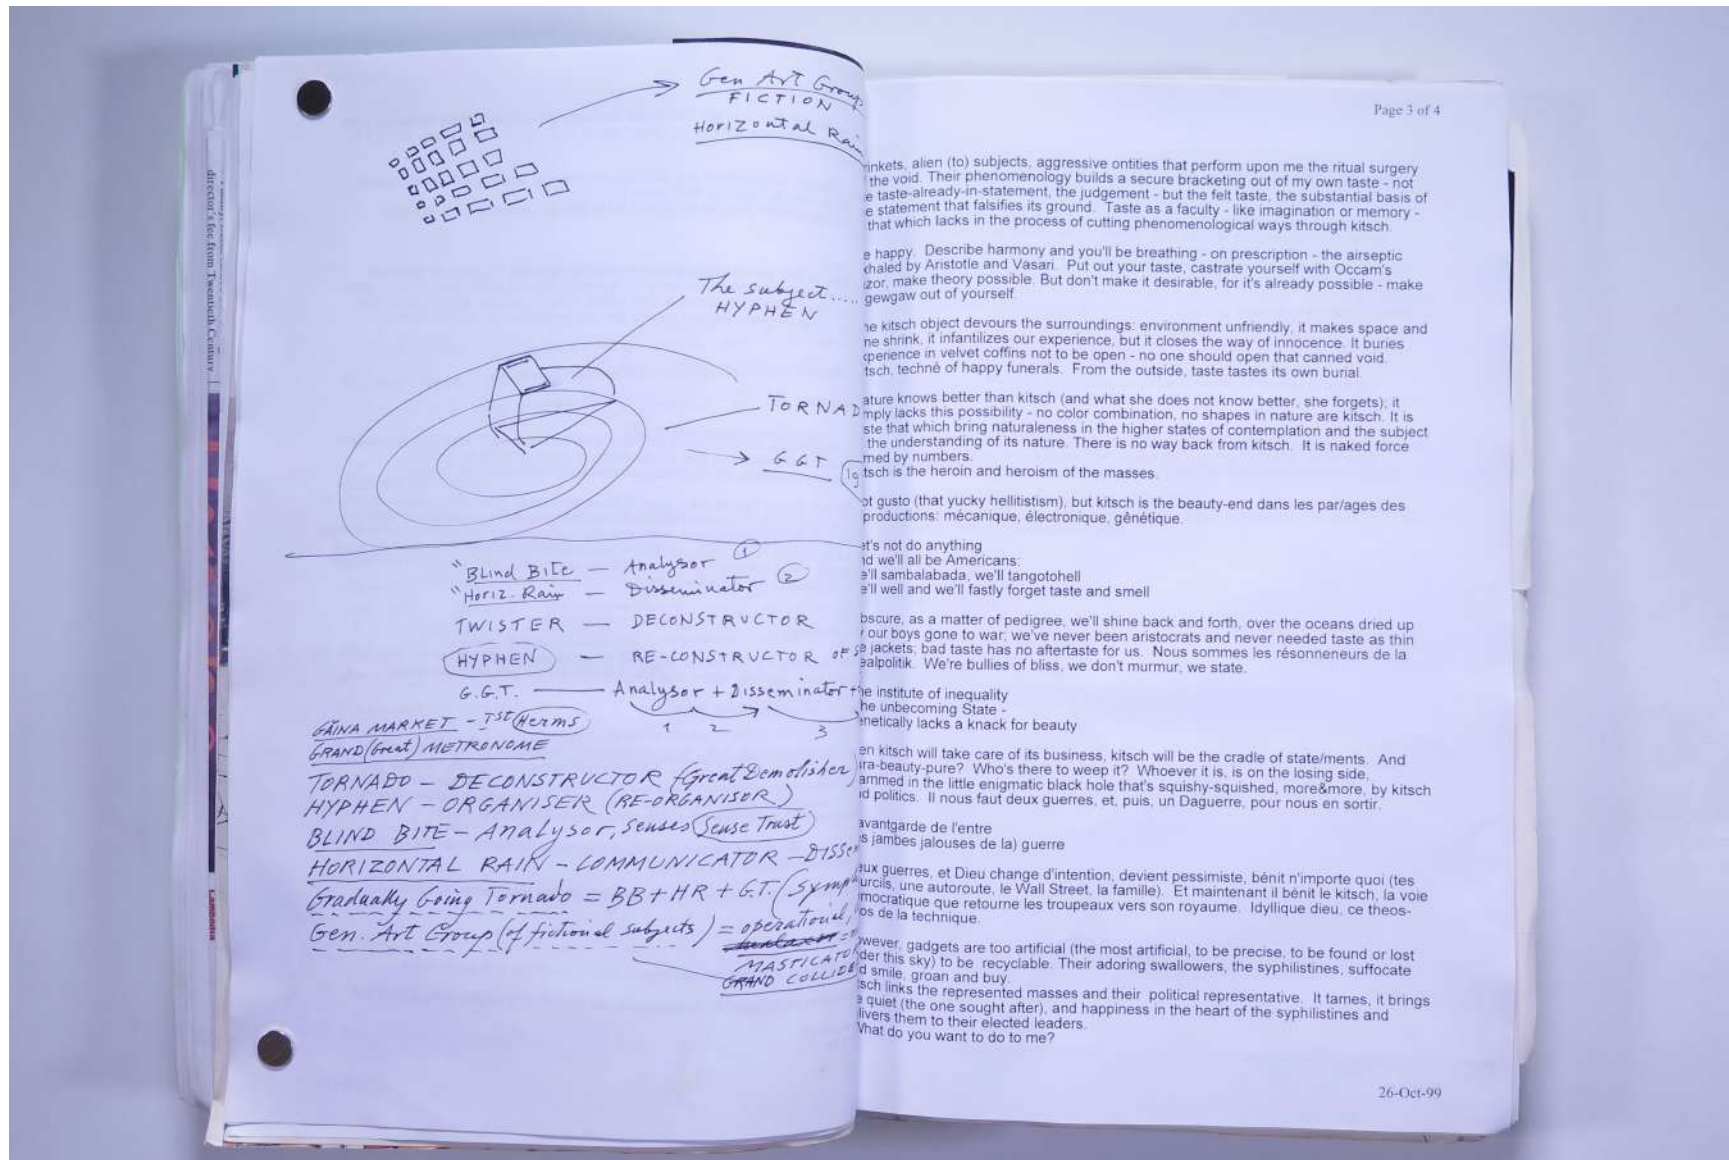 director's fee from Twentieth Century
Lambdna
Gen Art Group
FICTION
Horizontal Rain
The subject.....
HYPHEN
TORNAD
G G T
"Blind Bite — Analysor 1
"Horiz. Rain — Disseminator 2
TWISTER — DECONSTRUCTOR
HYPHEN — RE-CONSTRUCTOR OF
G.G.T. — Analysor + Disseminator +
1 2 3
GĂINA MARKET - 1st Herms
GRAND (Great) METRONOME
TORNADO - DECONSTRUCTOR (Great Demolisher)
HYPHEN - ORGANISER (RE-ORGANISOR)
BLIND BITE - Analysor, senses Sense Trust
HORIZONTAL RAIN - COMMUNICATOR - DISSE
Gradually Going Tornado = BB + HR + G.T. (Symph
Gen. Art Group (of fictional subjects) = operational,
MASTICATO
GRAND COLLIDE
Page 3 of 4
inkets, alien (to) subjects, aggressive ontities that perform upon me the ritual surgery
the void. Their phenomenology builds a secure bracketing out of my own taste - not
e taste-already-in-statement, the judgement - but the felt taste, the substantial basis of
e statement that falsifies its ground. Taste as a faculty - like imagination or memory -
that which lacks in the process of cutting phenomenological ways through kitsch.
e happy. Describe harmony and you'll be breathing - on prescription - the airseptic
haled by Aristotle and Vasari. Put out your taste, castrate yourself with Occam's
zor, make theory possible. But don't make it desirable, for it's already possible - make
gewgaw out of yourself.
he kitsch object devours the surroundings: environment unfriendly, it makes space and
ne shrink, it infantilizes our experience, but it closes the way of innocence. It buries
xperience in velvet coffins not to be open - no one should open that canned void.
tsch, techné of happy funerals. From the outside, taste tastes its own burial.
ature knows better than kitsch (and what she does not know better, she forgets); it
mply lacks this possibility - no color combination, no shapes in nature are kitsch. It is
ste that which bring naturaleness in the higher states of contemplation and the subject
the understanding of its nature. There is no way back from kitsch. It is naked force
med by numbers.
tsch is the heroin and heroism of the masses.
ot gusto (that yucky hellitistism), but kitsch is the beauty-end dans les par/ages des
productions: mécanique, électronique, gênétique.
et's not do anything
nd we'll all be Americans:
e'll sambalabada, we'll tangotohell
e'll well and we'll fastly forget taste and smell
bscure, as a matter of pedigree, we'll shine back and forth, over the oceans dried up
our boys gone to war; we've never been aristocrats and never needed taste as thin
e jackets; bad taste has no aftertaste for us. Nous sommes les résonneneurs de la
ealpolitik. We're bullies of bliss, we don't murmur, we state.
he institute of inequality
he unbecoming State -
enetically lacks a knack for beauty
en kitsch will take care of its business, kitsch will be the cradle of state/ments. And
ura-beauty-pure? Who's there to weep it? Whoever it is, is on the losing side,
ammed in the little enigmatic black hole that's squishy-squished, more&more, by kitsch
nd politics. Il nous faut deux guerres, et, puis, un Daguerre, pour nous en sortir.
avantgarde de l'entre
s jambes jalouses de la) guerre
eux guerres, et Dieu change d'intention, devient pessimiste, bénit n'importe quoi (tes
urcils, une autoroute, le Wall Street, la famille). Et maintenant il bénit le kitsch, la voie
mocratique que retourne les troupeaux vers son royaume. Idyllique dieu, ce theos-
os de la technique.
owever, gadgets are too artificial (the most artificial, to be precise, to be found or lost
der this sky) to be recyclable. Their adoring swallowers, the syphilistines, suffocate
d smile, groan and buy.
sch links the represented masses and their political representative. It tames, it brings
e quiet (the one sought after), and happiness in the heart of the syphilistines and
livers them to their elected leaders.
What do you want to do to me?
26-Oct-99